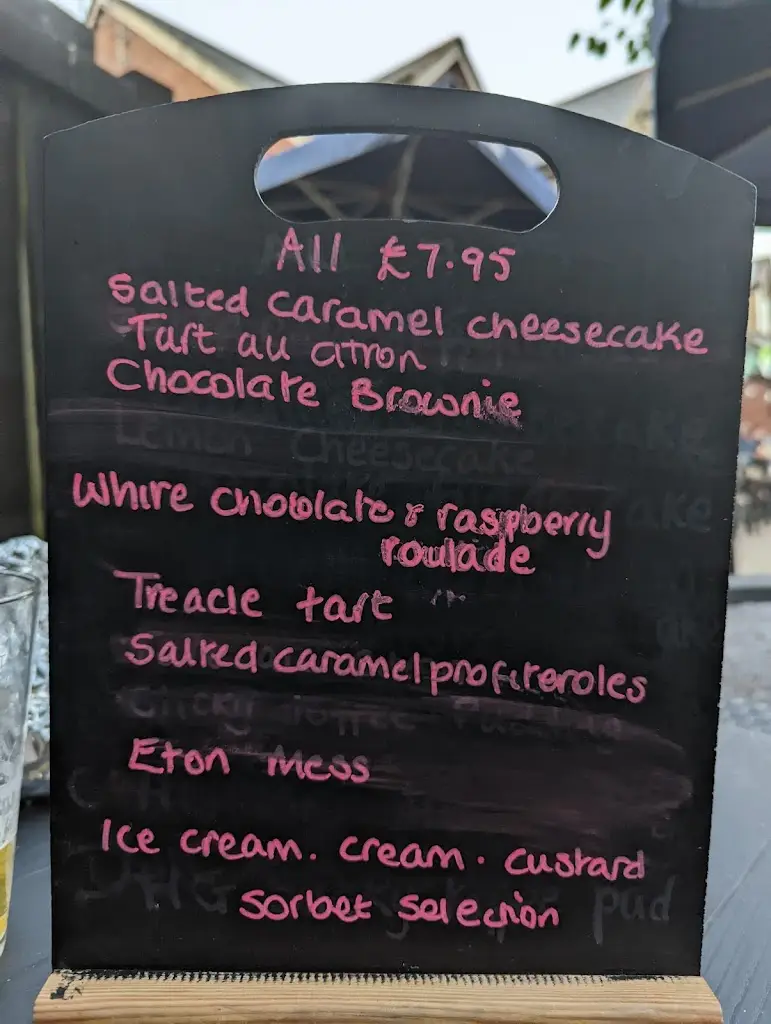 All £7.95
Salted caramel cheesecake
Tart au citron
Chocolate Brownie
Lemon Cheesecake
White chocolate & raspberry
roulade
Treacle tart
Salted caramel profiteroles
Sticky Toffee Pudding
Eton Mess
Ice cream. cream. custard
Sorbet selection
pud